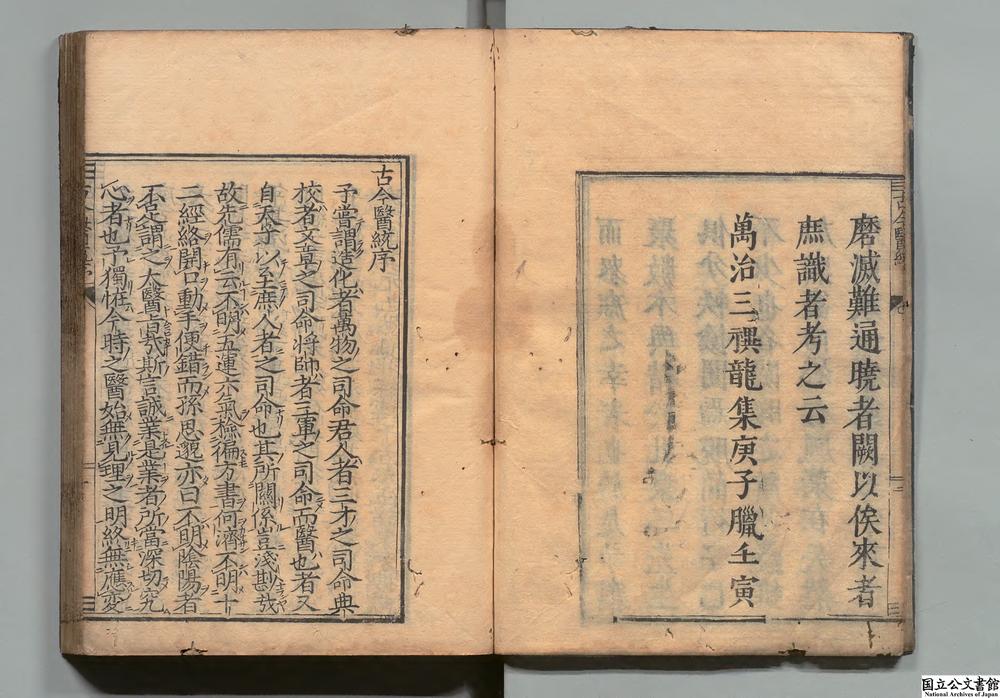 磨滅難通曉者闕以俟來者
庶識者考之云
萬治三禩龍集庚子臘壬寅
古今醫統序
予嘗謂造化者萬物之司命君人者三才之司命典
校者文章之司命將帥者三軍之司命而醫也者又
自天子以至庶人者之司命也其所關係豈淺尠哉
故先儒有云不明五運六氣檢徧方書何濟不明十
二經絡開口動手便錯而孫思邈亦曰不明陰陽者
不足謂之大醫旨哉斯言誠業是業者所當深切究
心者也予獨怪今時之醫始無見理之明終無應変
国立公文書館
National Archives of Japan